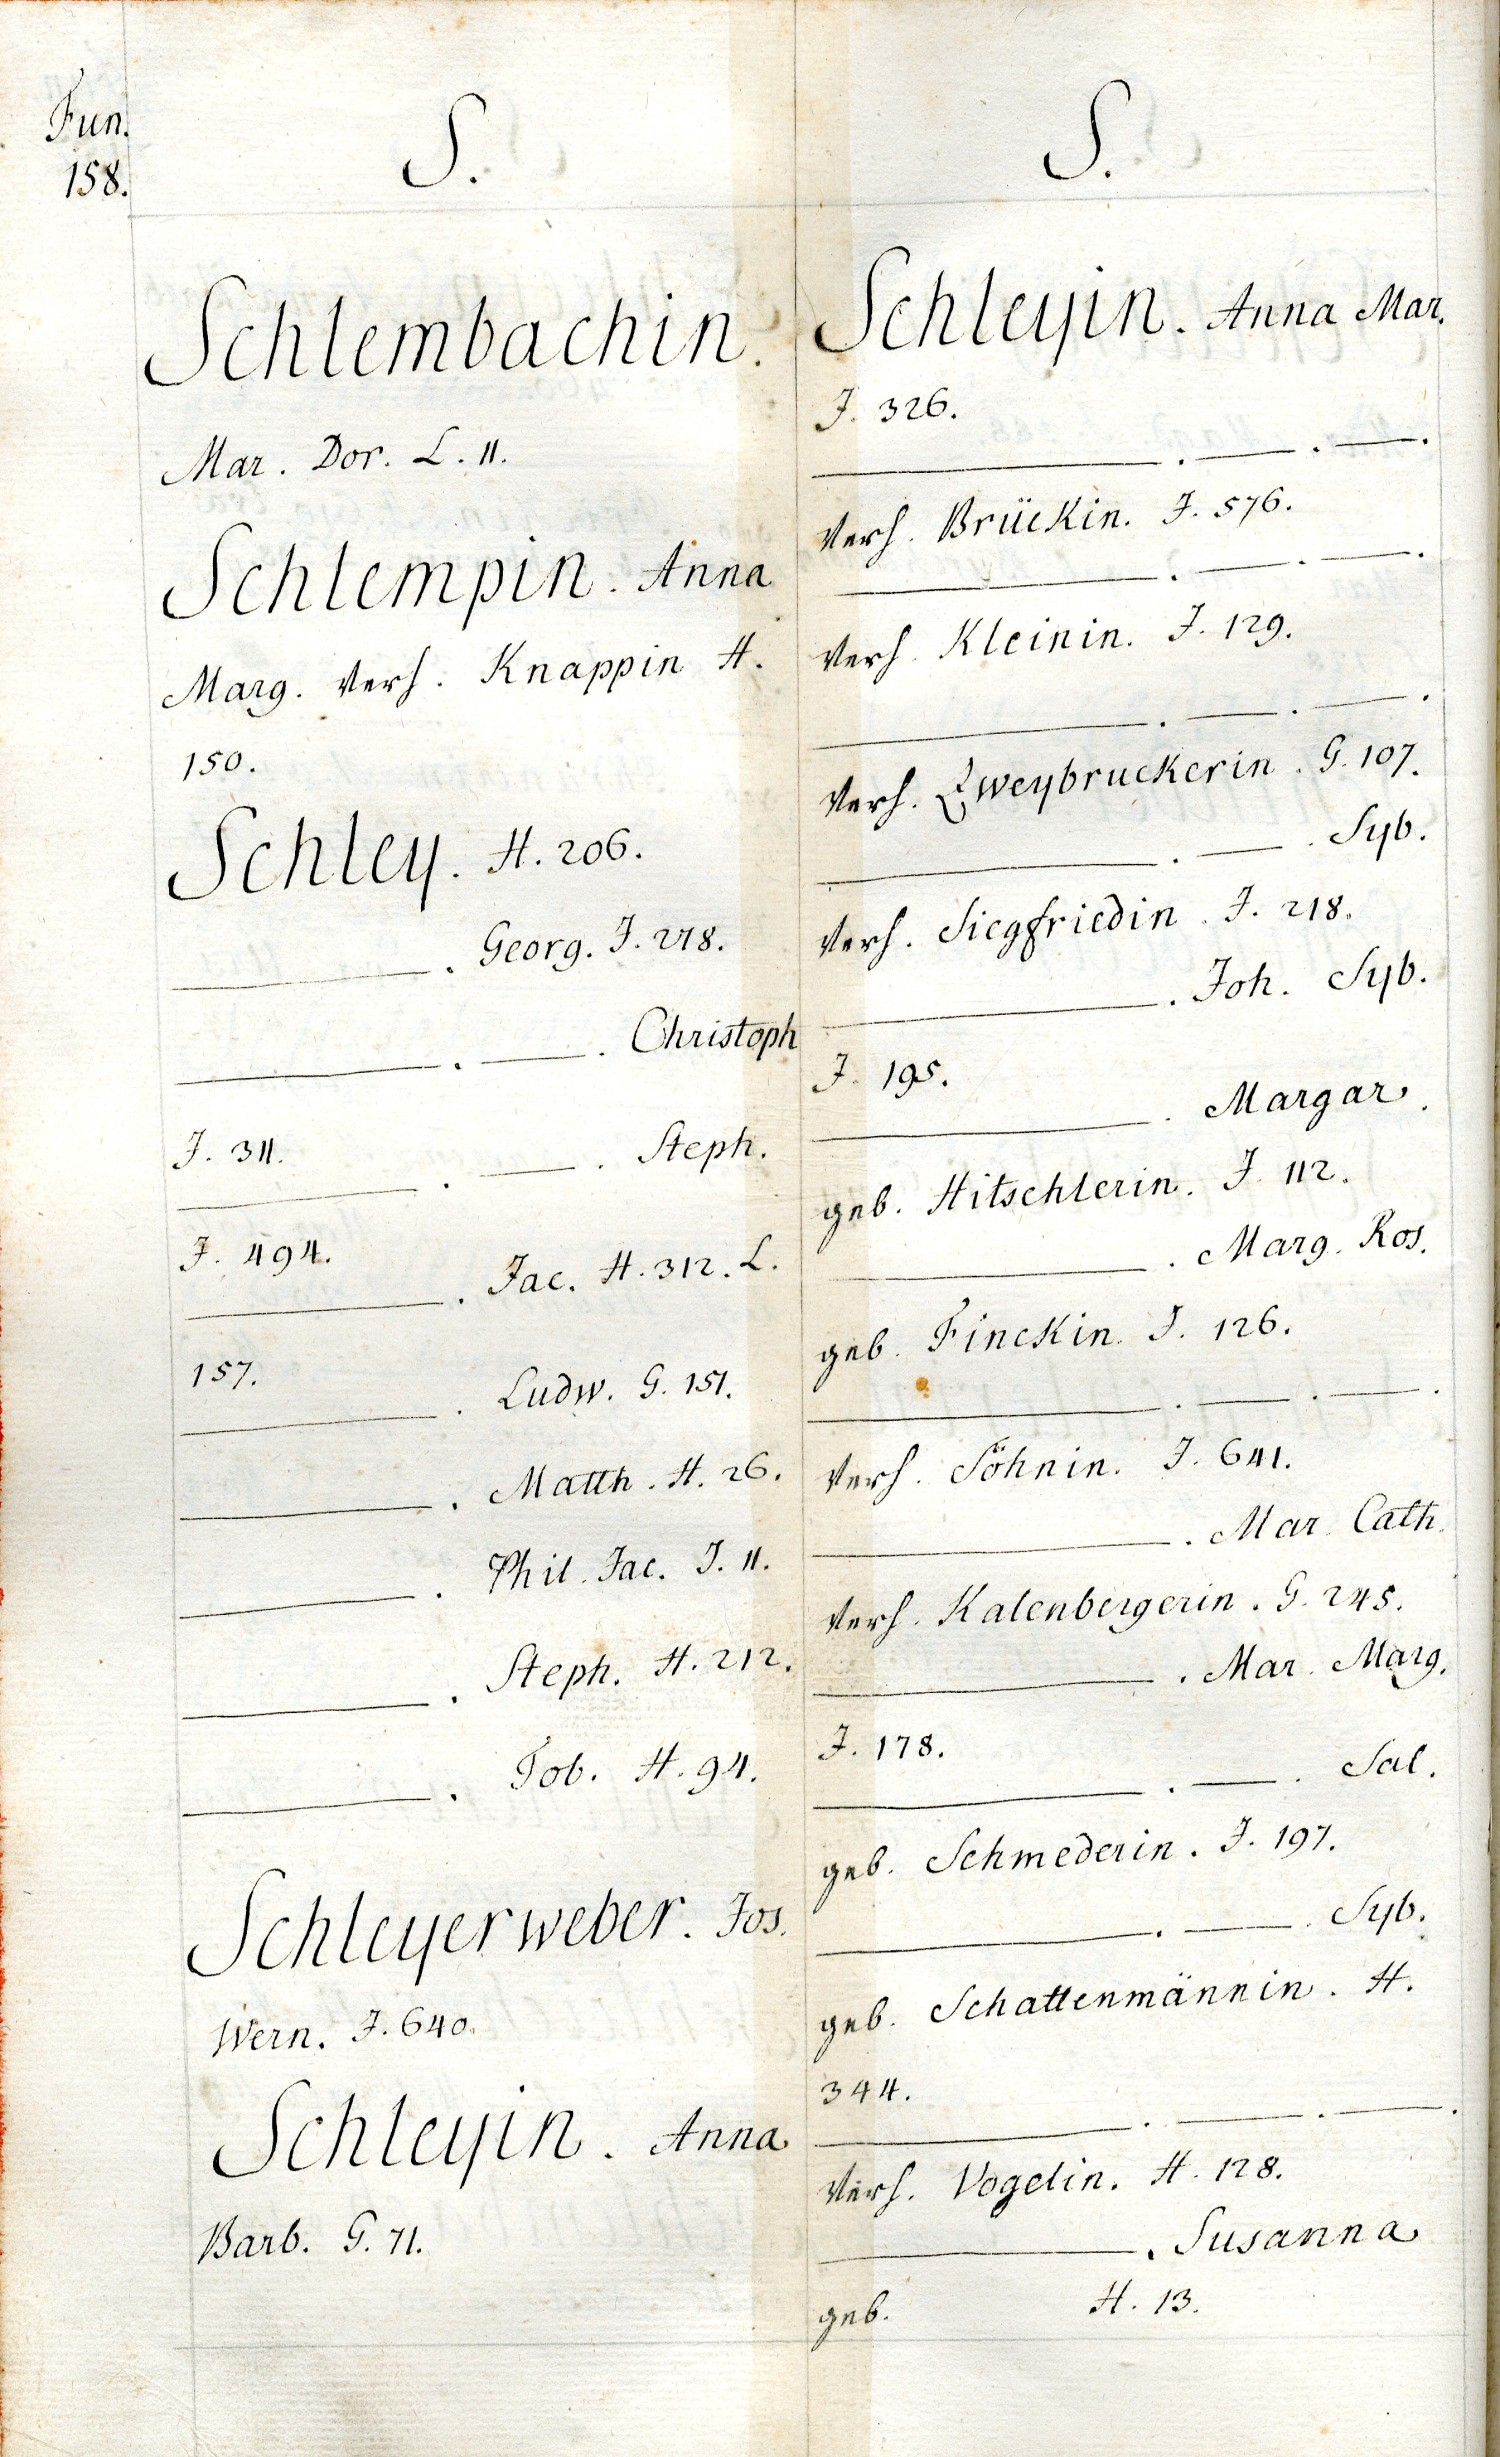 Fun.
158.
S.
Schlembachin.
Mar. Dor. L. 11.
Schlempin. Anna
Marg. verh. Knappin H.
150.
Schley. H. 206.
———. Georg. J. 278.
———. ——. Christoph
J. 311.
———. ——. Steph.
J. 494.
———. Jac. H. 312. L.
157.
———. Ludw. G. 151.
———. Matth. H. 26.
———. Phil. Jac. J. 11.
———. Steph. H. 212.
———. Tob. H. 94.
Schleyerweber. Jos.
Wern. J. 640.
Schleyin. Anna
Barb. G. 71.
S.
Schleyin. Anna Mar.
J. 326.
———. ——. ——.
verh. Brückin. J. 576.
———. ——. ——.
verh. Kleinin. J. 129.
———. ——. ——.
verh. Zweybruckerin. G. 107.
———. ——. Syb.
verh. Siegfriedin. J. 218.
———. Joh. Syb.
J. 195.
———. Margar.
geb. Hitschlerin. J. 112.
———. Marg. Ros.
geb. Finckin. J. 126.
———. ——. ——.
verh. Söhnin. J. 641.
———. Mar. Cath.
verh. Kalenbergerin. G. 245.
———. Mar. Marg.
J. 178.
———. ——. Sal.
geb. Schmederin. J. 197.
———. ——. Syb.
geb. Schattenmännin. H.
344.
———. ——. ——.
verh. Vogelin. H. 128.
———. Susanna
geb. H. 13.